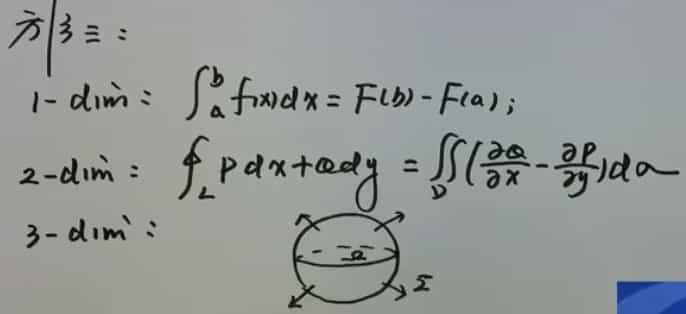 方3三：
1-dim：∫_a^b f(x)dx = F(b) - F(a);
2-dim：∮_L Pdx+Qdy = ∬_D (∂Q/∂x - ∂P/∂y)dσ
3-dim：
Ω
Σ